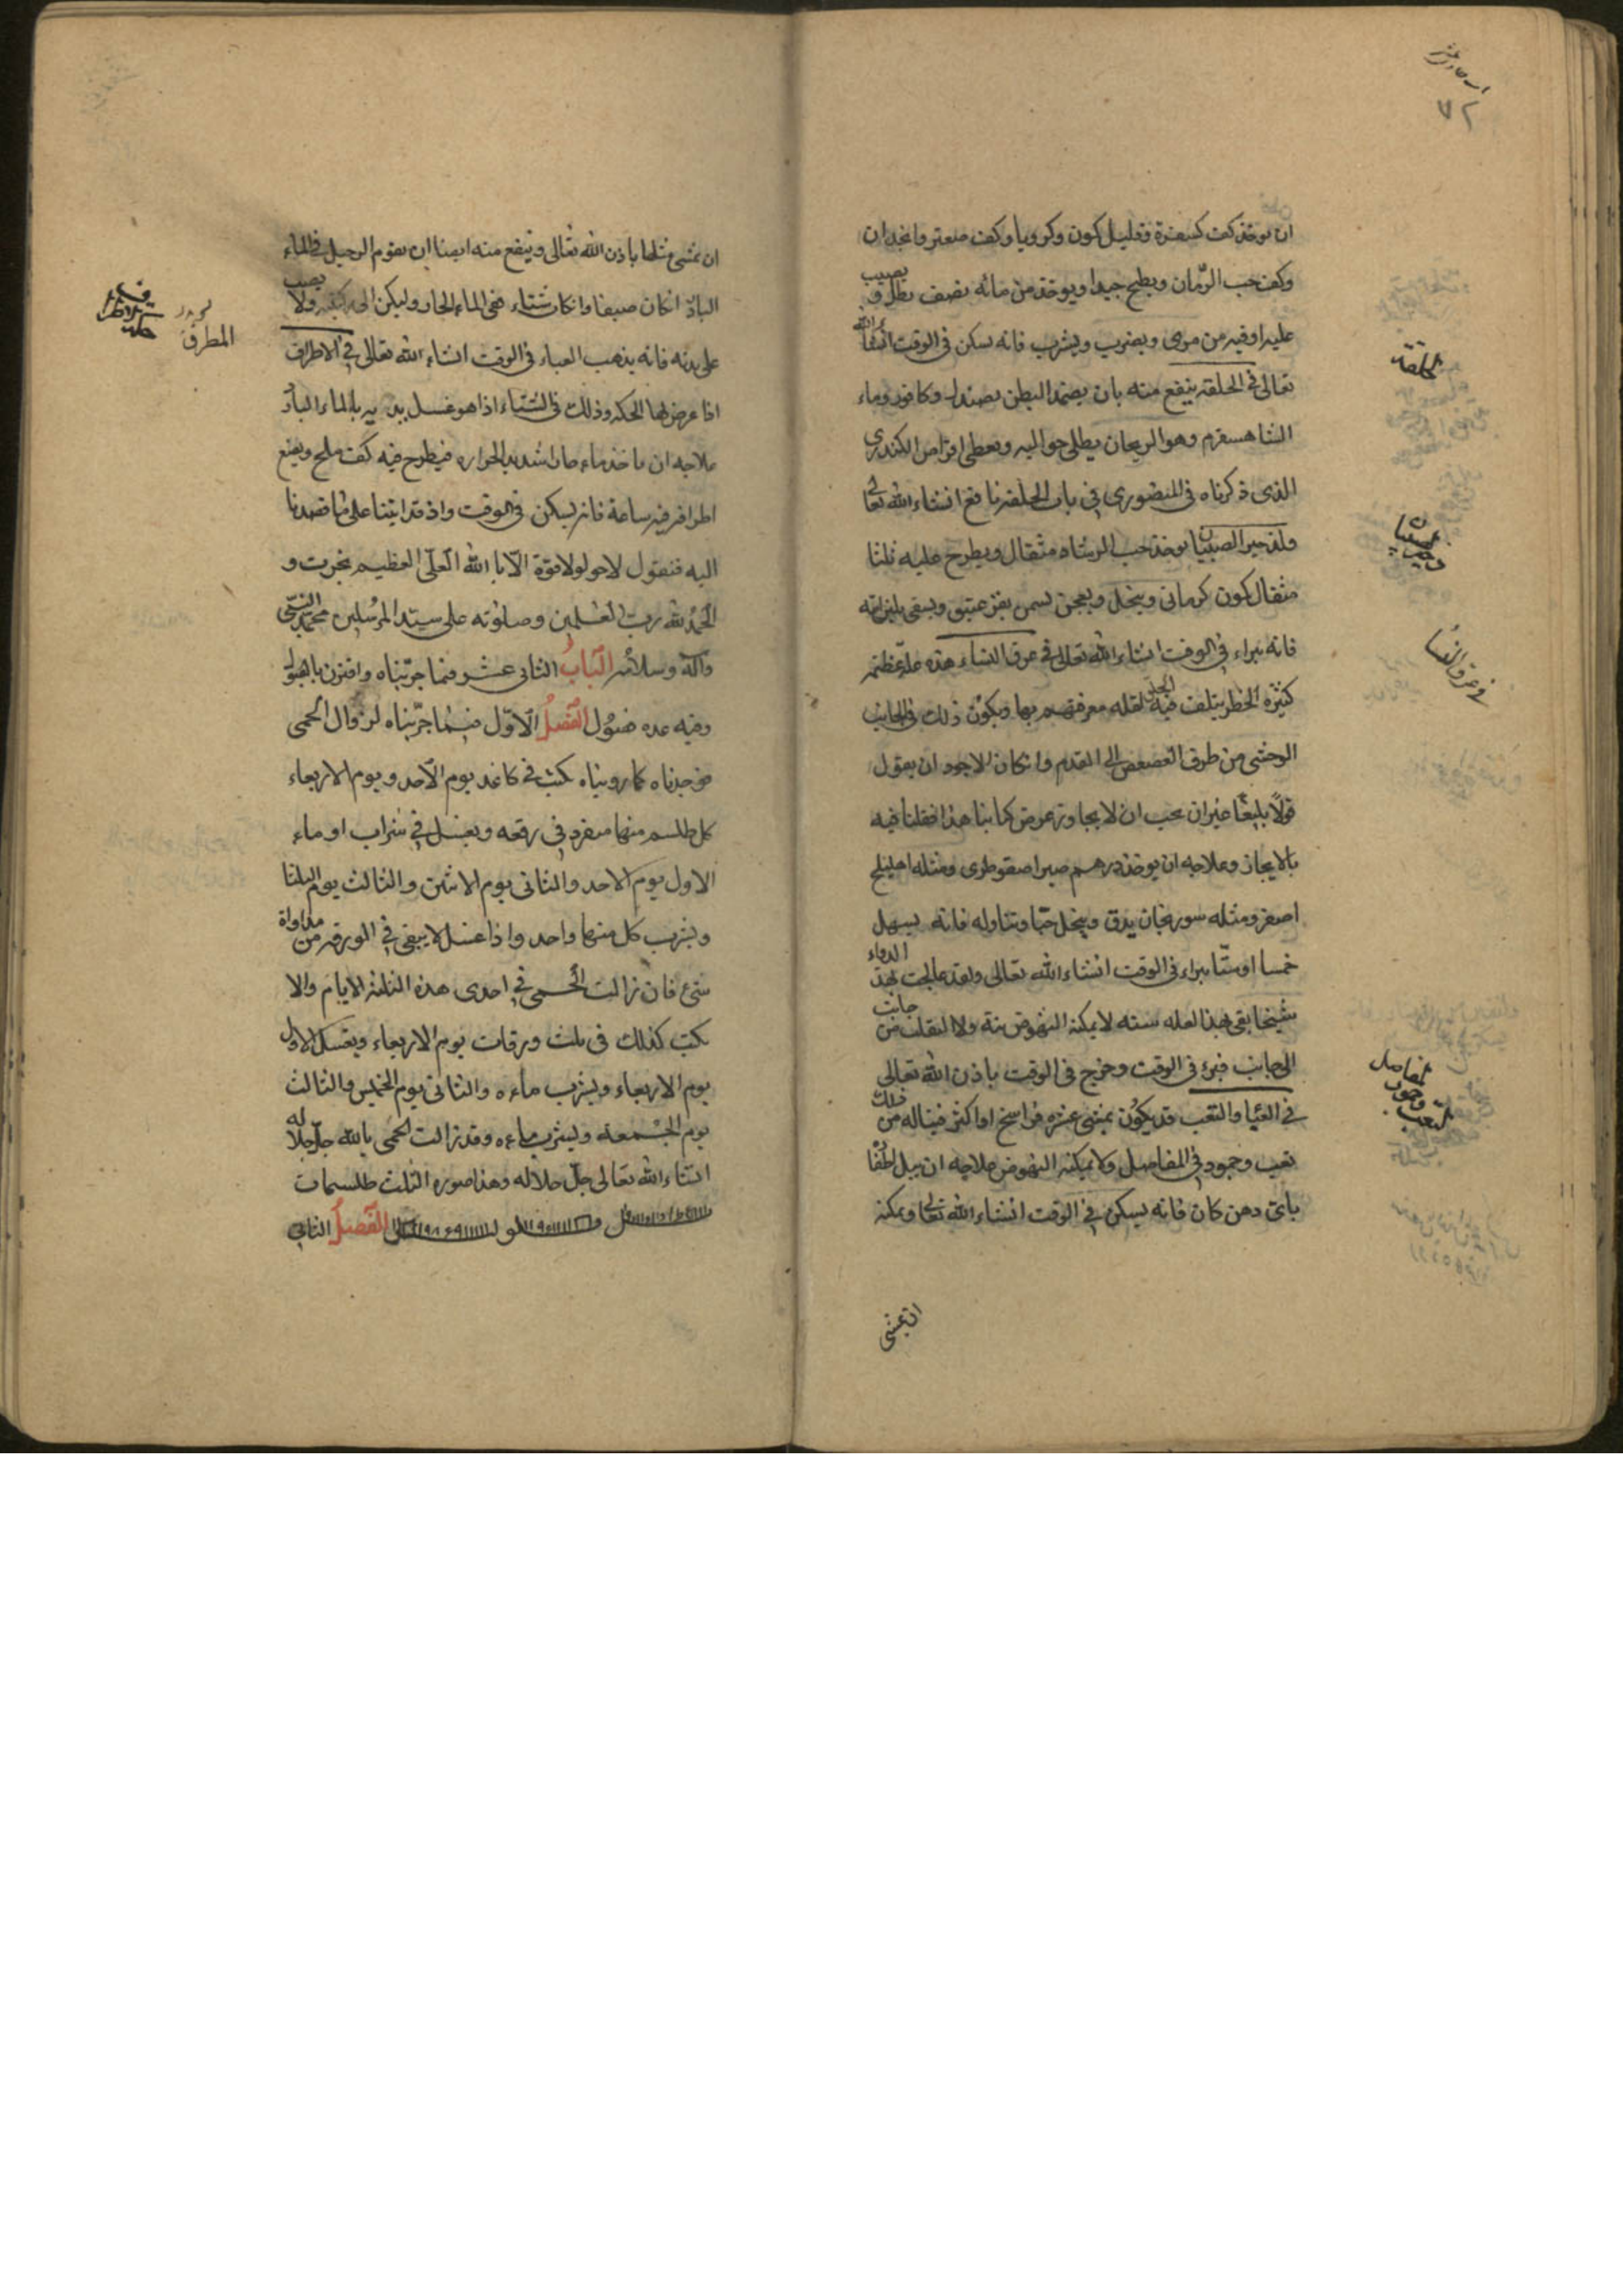 ٧٢
ان يوخذ كف كسفرة وقليل كمون وكرويا وكف صعتر وانجدان
وكف حب الرمان ويطبخ جيدا ويوخذ من مائه نصف رطل و يصيب
عليه اوقيه من مرى ويضرب ويشرب فانه يسكن فى الوقت انشاء الله
تعالى فى الخلقة ينفع منه بان يضمد البطن بصندل وكافور وماء
الشاهسفرم وهو الريحان يطلى حواليه ويعطى اقراص الكندرى
الذى ذكرناه فى المنصورى فى باب الخلفه نافع انشاء الله تعالى
ولزحير الصبيان يوخذ حب الرشاد مثقال ويطرح عليه ثلثا
مثقال كمون كرمانى وينخل ويعجن بسمن بقر عتيق ويسقى بلبن امه
فانه يبراء فى الوقت انشاء الله تعالى فى عرق النساء هذه علة عظيمة
كثيرة الخطر يتلف فيه الخلق لقله معرفتهم بها ويكون ذلك فى الجانب
الوحشى من طرف العصعص الى القدم وان كان الاجود ان يقول
قولًا بليغًا غير ان يجب ان لا يجاوز غرض كتابنا هذا فقلنا فيه
بالايجاز وعلاجه ان يوخذ درهم صبر اصقوطرى ومثله اهليلج
اصفر ومثله سورنجان يدق وينخل حبا وتناوله فانه يسهل
خمسا او ستا يبراء فى الوقت انشاء الله تعالى ولقد عالجت بهذ الدواء
شيخا بقى بهذا لعله سنه لا يمكنه النهوض بتة ولا التقلب من جانب
الى جانب فبرئ فى الوقت وخرج فى الوقت باذن الله تعالى
فى العيا والتعب قد يكون بمشى عشرة فراسخ او اكثر فيناله من ذلك
تعب وجمود فى المفاصل ولا يمكنه النهوض علاجه ان يبل لطفًا
باى دهن كان فانه يسكن فى الوقت انشاء الله تعالى ويمكنه
ان يمشى
الخلقة
فى عرق النسا
ان يمشى مثلها باذن الله تعالى وينفع منه ايضا ان يقوم الرجل فى الماء
البارد ان كان صيفا وان كان شتاء ففى الماء الحار وليكن الى ركبتيه ولا يصب
على بدنه فانه يذهب العياء فى الوقت انشاء الله تعالى فى الاطراف
اذا عرض لها الحكه وذلك فى الشتاء اذا هو غسل يديه بالماء البارد
علاجه ان ياخذ ماء حار شديد الحراره فيطرح فيه كف ملح ويضع
اطرافه فيه ساعة فانه يسكن فى الوقت واذ قد اتينا على ما قصدنا
اليه فنقول لا حول ولا قوة الا بالله العلى العظيم نجزت و
الحمد لله رب العلمين وصلوته على سيد المرسلين محمد النبى
وآله وسلامه الباب الثانى عشر فيما جربناه واقترن
وفيه عده فصول الفصل الاول فيما جربناه لزوال الحمى
فوجدناه كما رويناه يكتب فى كاغد يوم الاحد و يوم الاربعاء
كل طلسم منها مفرد فى رقعه ويغسل فى شراب او ماء
الاول يوم الاحد والثانى يوم الاثنين والثالث يوم الثلثا
ويشرب كل منها واحد واذا غسل لا يبقى فى الورقه من مداواة
شئ فان زالت الحمى فى احدى هذه الثلثه الايام والا
يكتب كذلك فى ثلث ورقات يوم الاربعاء ويغسل الاول
يوم الاربعاء ويشرب ماءه والثانى يوم الخميس والثالث
يوم الجمعة ويشرب ماءه وقد زالت الحمى بالله جل جلاله
انشاء الله تعالى جل جلاله وهذا صوره الثلث طلسمات
الفصل الثانى